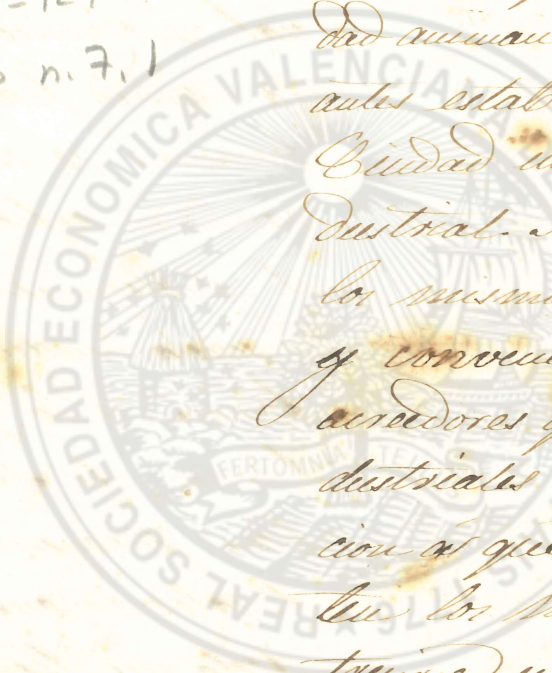 n. 7.1
dad animan
antes estab
Ciudad un
dustrial.
los mismo
y conveni
acreedores y
dustriales
cion al que
ten los
REAL SOCIEDAD ECONOMICA VALENCIANA
FERT OMNIA TELLUS
1776